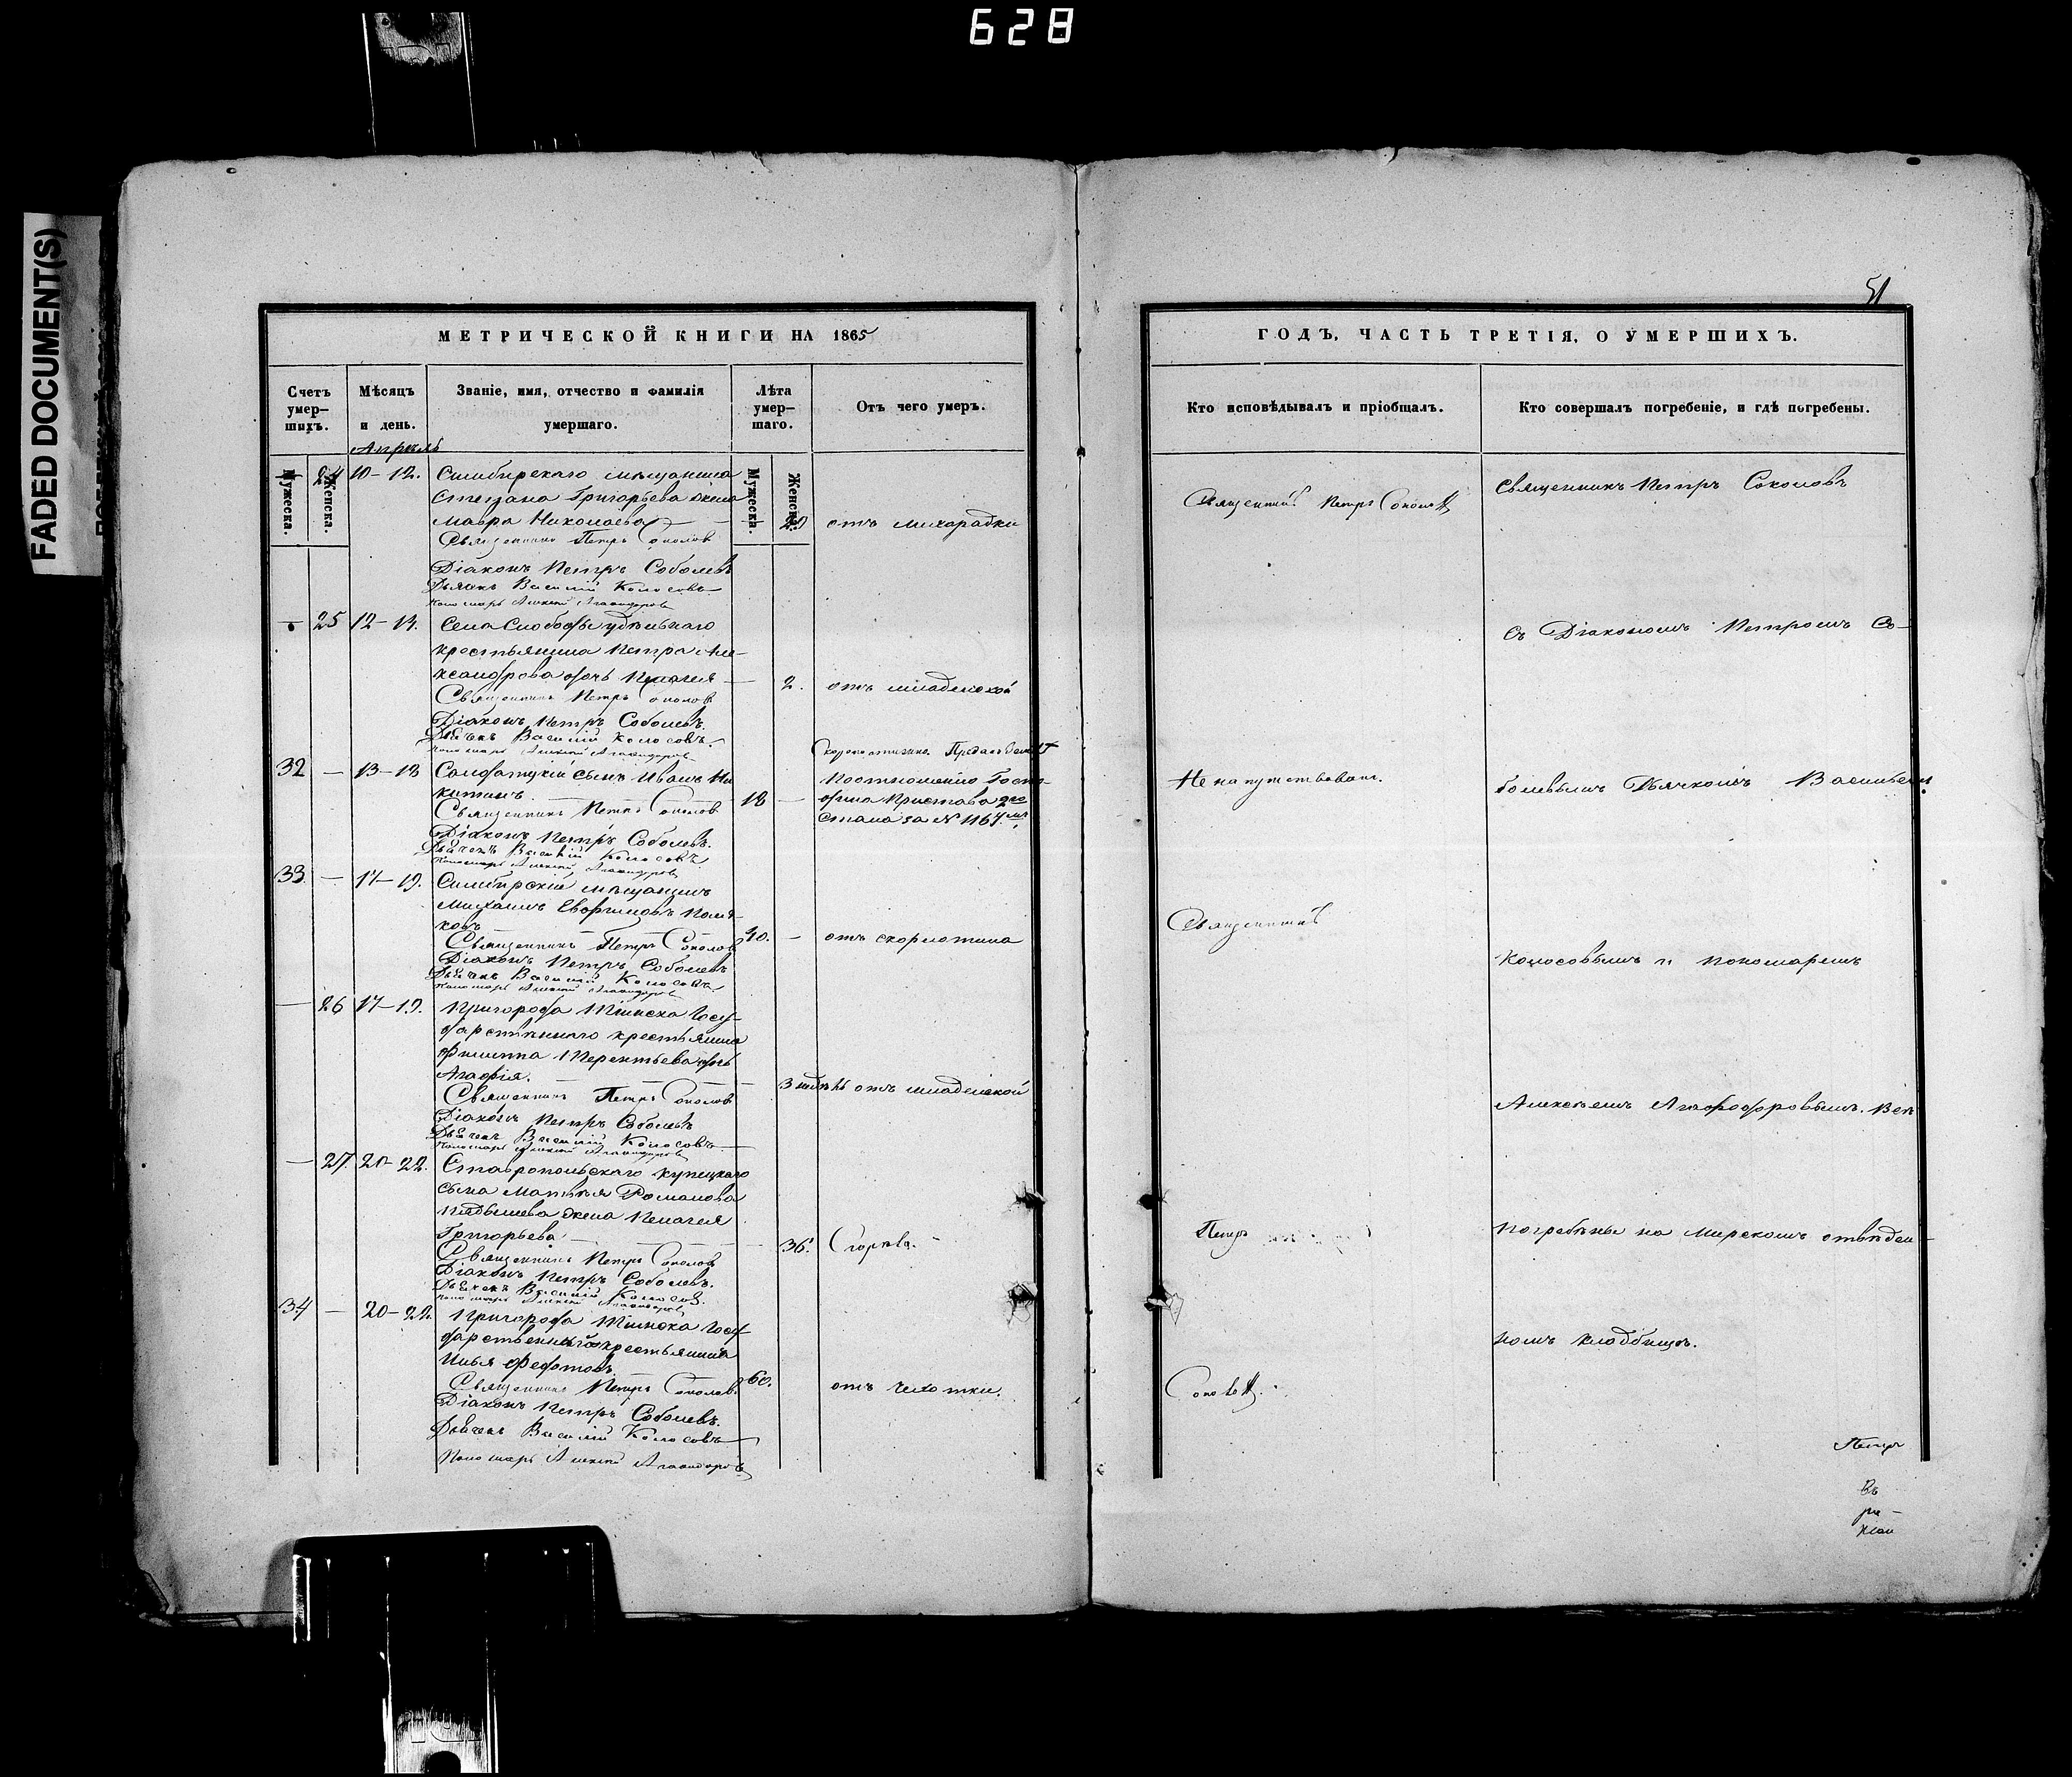 628
FADED DOCUMENT(S)
51
МЕТРИЧЕСКОЙ КНИГИ НА 1865
Счетъ умер-шихъ.
Мѣсяцъ и день.
Званіе, имя, отчество и фамилія умершаго.
Лѣта умер-шаго.
Отъ чего умеръ.
Мужеска.
Женска.
Мужеска.
Женска.
Апрѣль
24 10–12. Симбирскаго мѣщанина
Степана Григорьева жена
Мавра Николаева — отъ лихорадки
Священникъ Петръ Соколовъ
Діаконъ Петръ Соболевъ
Дьячекъ Василій Колосовъ
Пономарь Алексѣй
— 25 12–14. Села Слободы удѣльнаго
крестьянина Петра Але-
ксандрова дочь Пелагея — 2. отъ младенской
Священникъ Петръ Соколовъ
Діаконъ Петръ Соболевъ.
Дьячекъ Василій Колосовъ.
Пономарь Алексѣй
Скоропостижно. Преданъ землѣ
32 — 13–18 Солдатскій сынъ Иванъ Ни
китинъ. 18 —
По отношенію Госпо-
дина Пристава 2го
Стана за № 1167мъ.
Священникъ Петръ Соколовъ
Діаконъ Петръ Соболевъ.
Дьячекъ Василій Колосовъ
Пономарь Алексѣй
33 — 17–19. Симбирскій мѣщанинъ
Михаилъ Поля-
ковъ 40. — отъ
Священникъ Петръ Соколовъ
Діаконъ Петръ Соболевъ
Дьячекъ Василій Колосовъ
Пономарь Алексѣй
— 26 17–19. Пригорода Тіинска Госу-
дарственнаго крестьянина
Филиппа Терентьева дочь
Агафія. — 3 недѣль отъ младенской
Священникъ Петръ Соколовъ
Діаконъ Петръ Соболевъ
Дьячекъ Василій Колосовъ
Пономарь Алексѣй
— 27 20–22. Ставропольскаго купецкаго
сына Матвѣя Романова
жена Пелагея
Григорьева — 36. Сгорѣла.
Священникъ Петръ Соколовъ
Діаконъ Петръ Соболевъ.
Дьячекъ Василій Колосов.
Пономарь Алексѣй
34 — 20–22. Пригорода Тіинска Госу
дарственный крестьянинъ
Илья Федотовъ. 60. отъ чехотки.
Священникъ Петръ Соколовъ
Діаконъ Петръ Соболевъ.
Дьячекъ Василій Колосовъ
Пономарь Алексѣй
ГОДЪ, ЧАСТЬ ТРЕТІЯ, О УМЕРШИХЪ.
Кто исповѣдывалъ и пріобщалъ.
Кто совершалъ погребеніе, и гдѣ погребены.
Священникъ Петръ Соколовъ
Не напутствованъ.
Священникъ
Петръ
Соколовъ.
Священникъ Петръ Соколовъ
съ Діакономъ Петромъ Со-
болевымъ Дьячкомъ Васильемъ
Колосовымъ и Пономаремъ
Алексѣемъ
погребены на Мірскомъ отведен-
номъ кладбищѣ.
Петръ
Въ